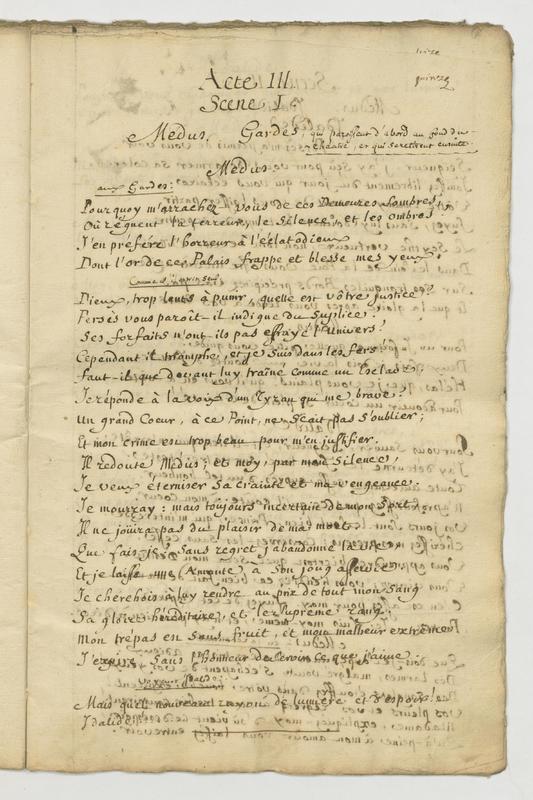 quinze
Acte III
Scene I
Medus, Gardes, qui paroissent d'abord au fond du
Théatre, et qui se retirent ensuite.
Medus
aux Gardes:
Pourquoy m'arracher vous de ces Demeures Sombres,
Où règnent la terreur, le Silence, et les ombres
J'en préfére l'horreur à l'éclat odieux
Dont l'or de ces Palais frappe et blesse mes yeux.
Dieux, trop lents à punir, quelle est vôtre justice?
Persès vous paroît-il indigne du Suplice?
Ses forfaits n'ont-ils pas effrayé l'Univers?
Cependant il triomphe, et je suis dans les fers!
faut-il que devant luy traîné comme un Esclave
Je réponde à la voix d'un Tyran qui me brave?
Un grand Coeur, à ce Point, ne Scait pas S'oublier;
Et mon crime est trop beau pour m'en justifier.
Il redoute Medus; et moy, par mon Silence,
Je veux éterniser Sa crainte et ma vengeance.
Je mourray: mais toujours incertain de mon Sort
Il ne joüira pas du plaisir de ma mort.
Que fais-je? Sans regret j'abandonne la vie
Et je laisse à Son joug asservie
Je cherchois à luy rendre au prix de tout mon Sang
Sa gloire héréditaire, et le Suprême rang.
Mon trépas est Sans fruit, et mon malheur extrême
J'expire Sans l'honneur de ce que j'aime.
Mais quel nouveau rayon de lumière et d'espoir!